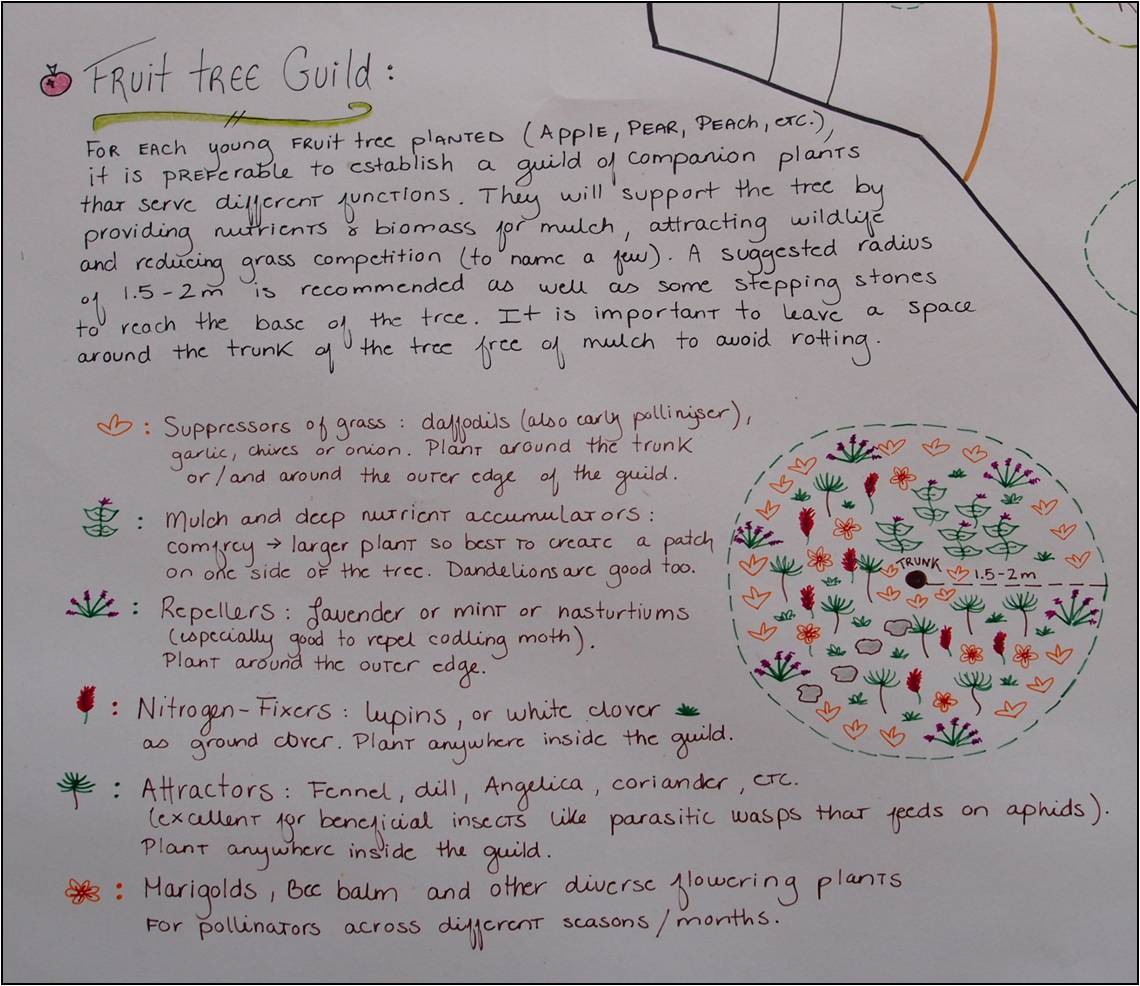 Fruit tree Guild :
For each young fruit tree planted (Apple, Pear, Peach, etc.),
it is preferable to establish a guild of companion plants
that serve different functions. They will support the tree by
providing nutrients & biomass for mulch, attracting wildlife
and reducing grass competition (to name a few). A suggested radius
of 1.5-2m is recommended as well as some stepping stones
to reach the base of the tree. It is important to leave a space
around the trunk of the tree free of mulch to avoid rotting.
: Suppressors of grass : daffodils (also early polliniser),
garlic, chives or onion. Plant around the trunk
or/and around the outer edge of the guild.
: Mulch and deep nutrient accumulators :
comfrey → larger plant so best to create a patch
on one side of the tree. Dandelions are good too.
: Repellers : lavender or mint or nasturtiums
(especially good to repel codling moth).
Plant around the outer edge.
: Nitrogen-Fixers : lupins, or white clover
as ground cover. Plant anywhere inside the guild.
: Attractors : Fennel, dill, Angelica, coriander, etc.
(excellent for beneficial insects like parasitic wasps that feeds on aphids).
Plant anywhere inside the guild.
: Marigolds, Bee balm and other diverse flowering plants
for pollinators across different seasons/months.
TRUNK
1.5-2m